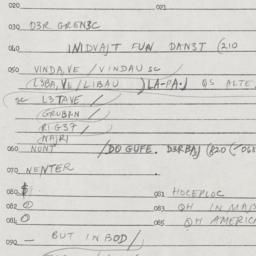 020 021
030 D3R GREN3C
040 INDVAJT FUN DANST (210
050 VINDA,VE / VINDAU SC
L3BA,VE / LIBAU ) LA-PA. QS ALTE
SC L3TAVE /
GRUBIN /
RIG37 /
NAJRI
060 NONT / DO GUFE. D3RBAJ (220 (-068
070 NENTER
080 051 HOCEPLOC
082 083 QH IN MAD
084 085 QH AMERICA
090 — BUT IN BOD /